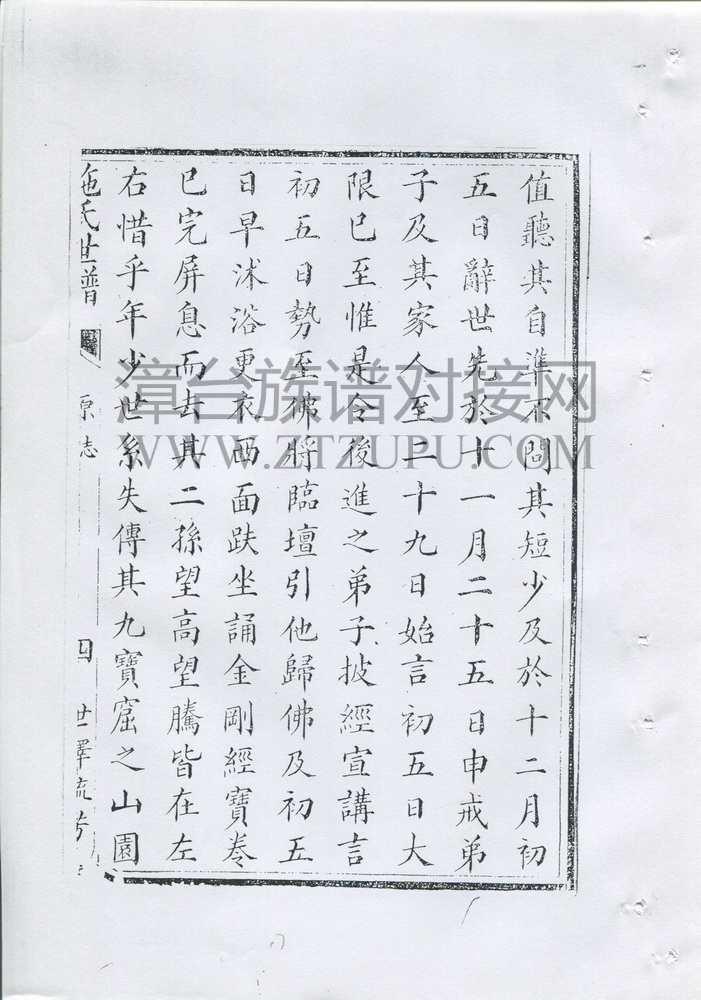 值聽其自準不問其短少及於十二月初
五日辭世先於十一月二十五日申戒弟
子及其家人至二十九日始言初五日大
限已至惟是令後進之弟子披經宣講言
初五日勢至佛將臨壇引他歸佛及初五
日早沐浴更衣西面趺坐誦金剛經寶卷
已完屏息而去其二孫望高望騰皆在左
右惜乎年少世系失傳其九寶窟之山園
施氏世譜 原誌 四 世澤流芳
漳台族谱对接网
WWW.ZTZUPU.COM